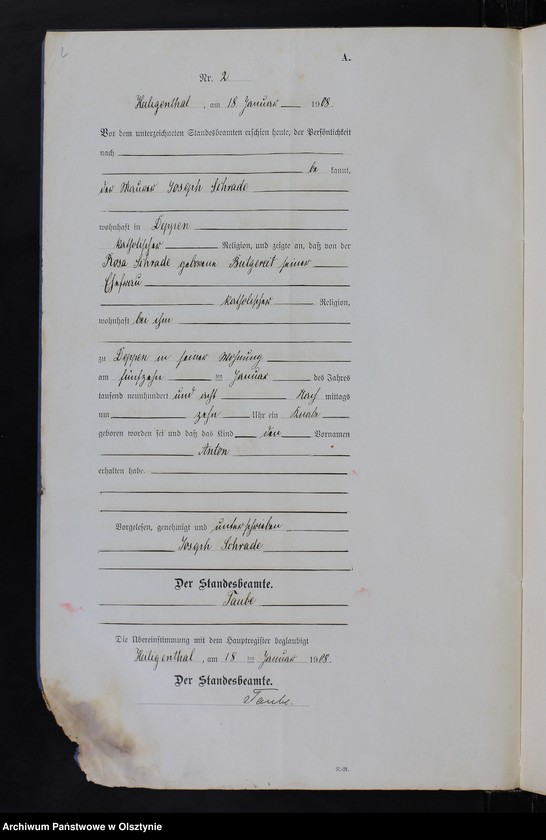 A.
Nr. 2
Heiligenthal, am 18 Januar 1908.
Vor dem unterzeichneten Standesbeamten erschien heute, der Persönlichkeit
nach
be kannt,
der Maurer Joseph Schrade
wohnhaft in Deppen
katholischer Religion, und zeigte an, daß von der
Rosa Schrade geborene Butgereit seiner
Ehefrau
katholischer Religion,
wohnhaft bei ihm
zu Deppen in seiner Wohnung
am fünfzehn ten Januar des Jahres
tausend neunhundert und acht Nach mittags
um zehn Uhr ein Knabe
geboren worden sei und daß das Kind den Vornamen
Anton
erhalten habe.
Vorgelesen, genehmigt und unterschrieben
Joseph Schrade
Der Standesbeamte.
Taube
Die Übereinstimmung mit dem Hauptregister beglaubigt
Heiligenthal, am 18 ten Januar 1908.
Der Standesbeamte.
Taube.
Archiwum Państwowe w Olsztynie